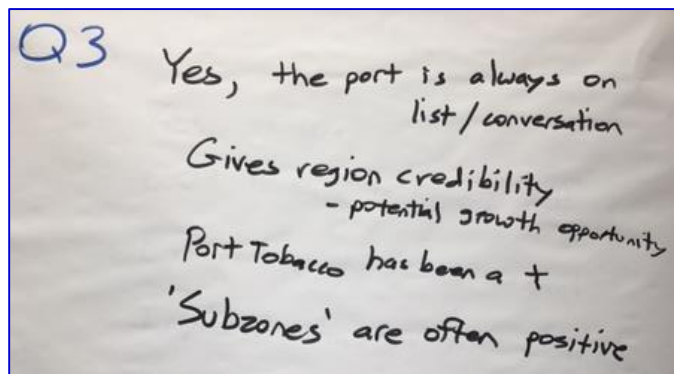 Q3
Yes, the port is always on
list/conversation
Gives region credibility
- potential growth opportunity
Port Tobacco has been a +
'Subzones' are often positive